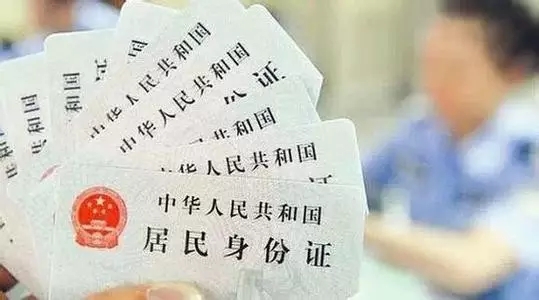 中华人民共和国
中华人民共和国
份证
中华人民共和国
中华人民共和国
中华人民共和国
居民身份证